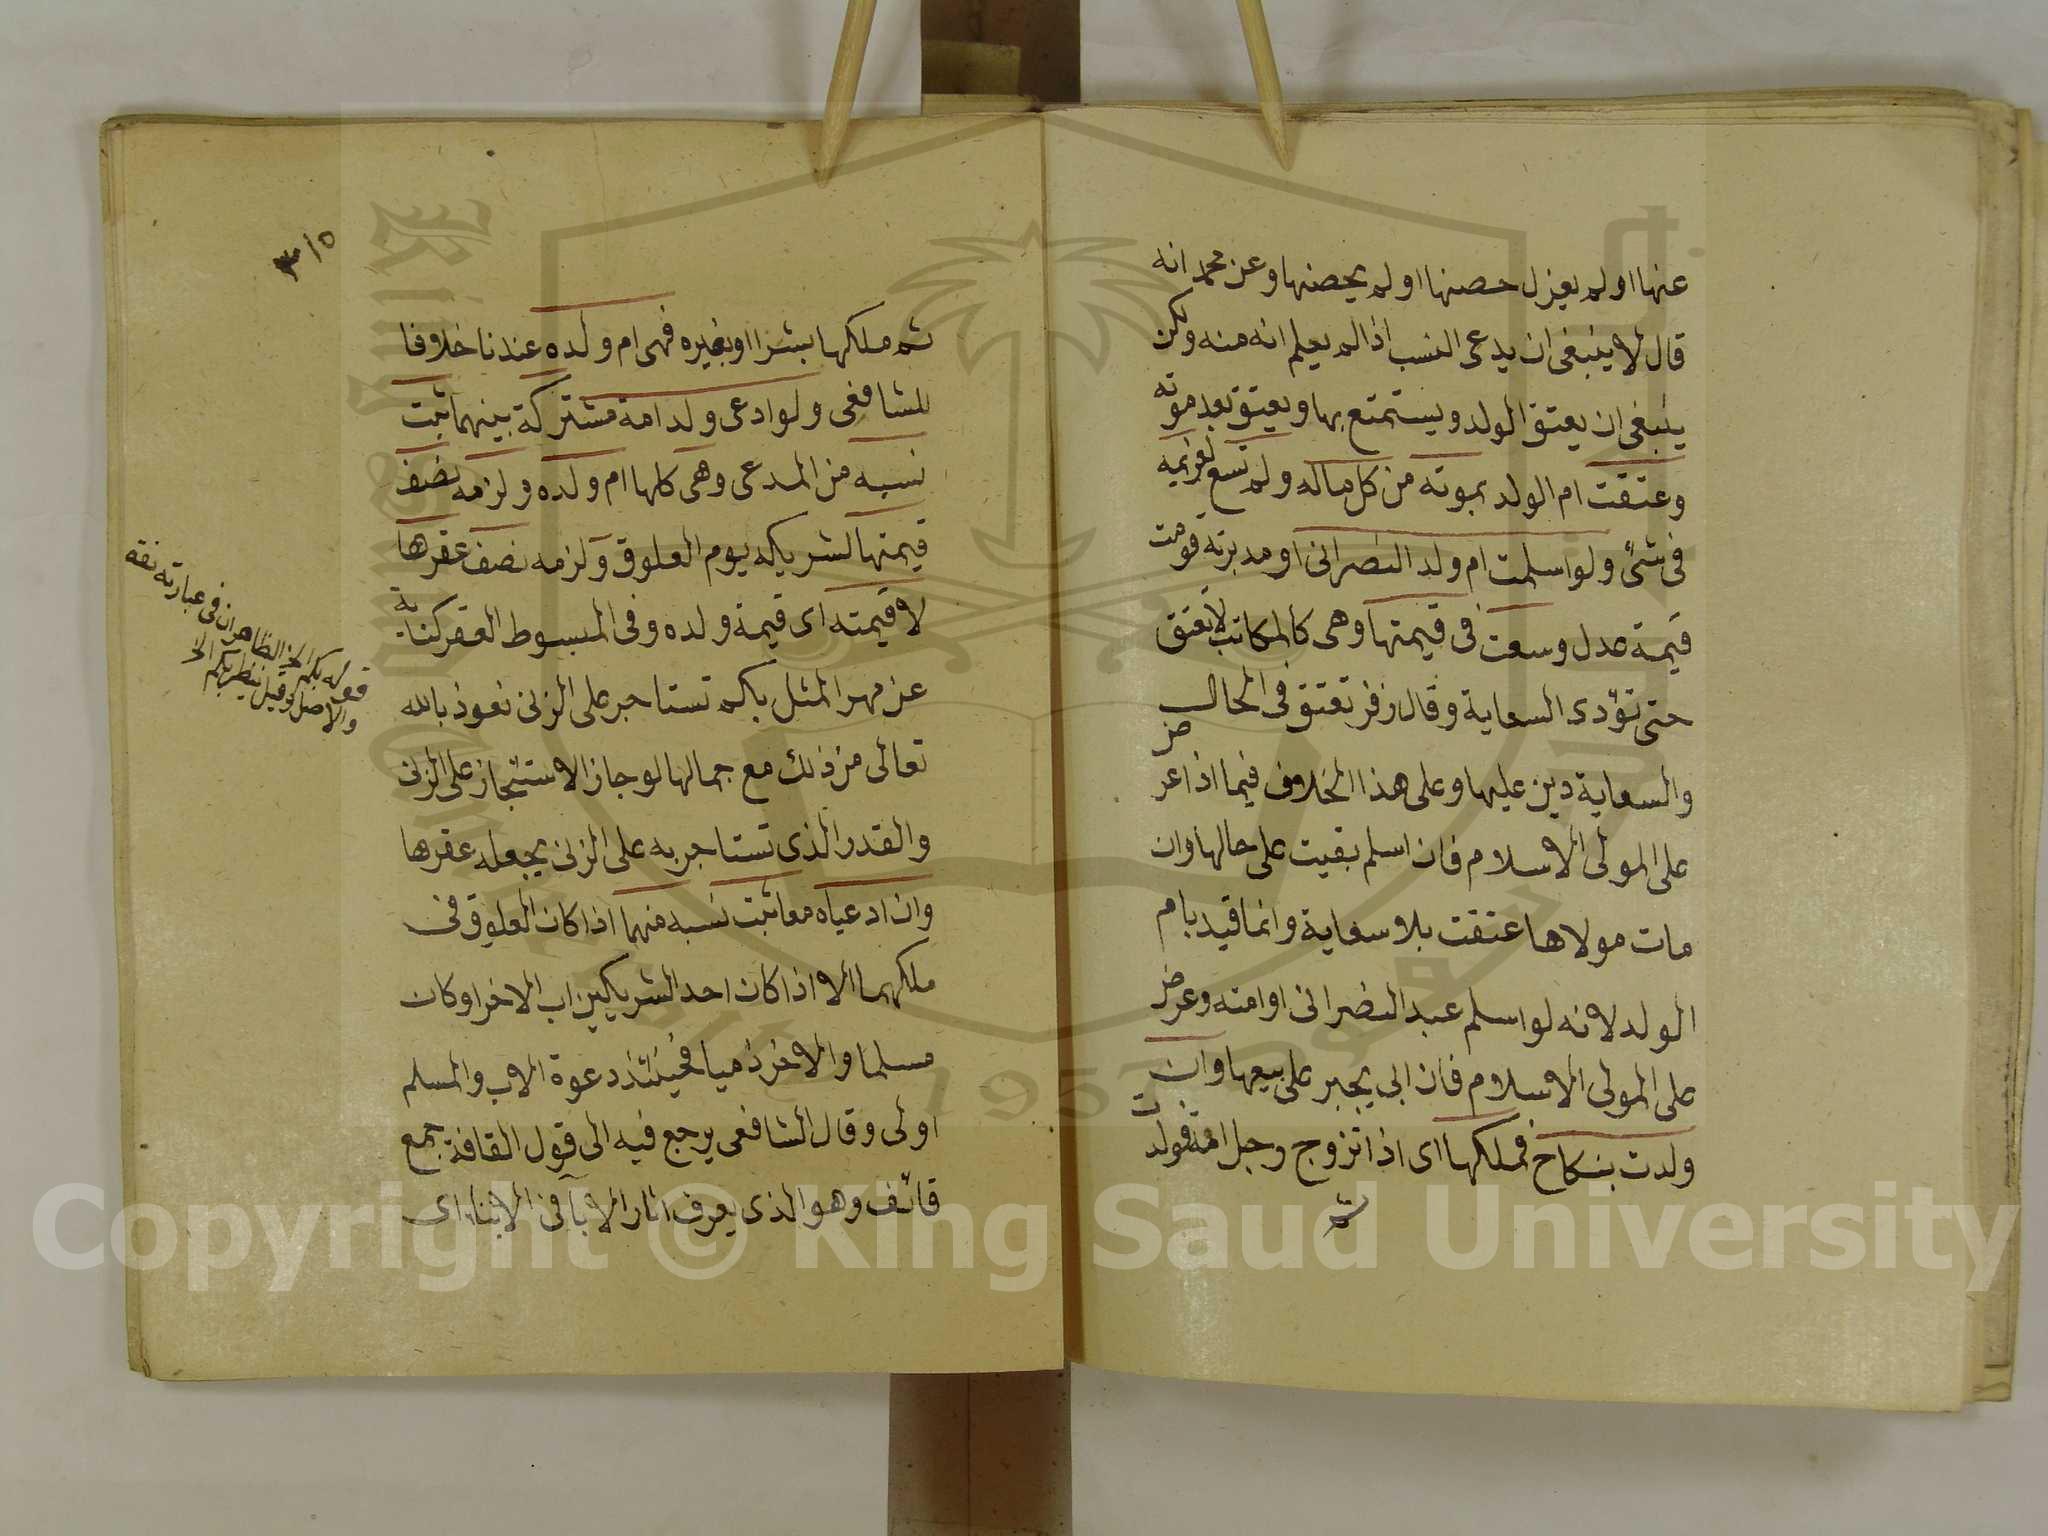 عنها او لم يعزل حصنها او لم يحصنها وعن محمد انه
قال لا ينبغى ان يدعى النسب اذا لم يعلم انه منه ولكن
ينبغى ان يعتق الولد ويستمتع بها ويعتق بعد موته
وعتقت ام الولد بموته من كل ماله ولم تسع لغرمائه
فى شئ ولو اسلمت ام ولد النصرانى او مدبرته قومت
قيمة عدل وسعت فى قيمتها وهى كالمكاتب لا تعتق
حتى تؤدى السعاية وقال زفر تعتق فى الحال
والسعاية دين عليها وعلى هذا الخلاف فيما اذا عرض
على المولى الاسلام فان اسلم بقيت على حالها وان
مات مولاها عتقت بلا سعاية وانما قيد بام
الولد لانه لو اسلم عبد النصرانى او امته وعرض
على المولى الاسلام فان ابى يجبر على بيعها وان
ولدت بنكاح فملكها اى اذا تزوج رجل امة فولدت
ثم
٣١٥
ثم ملكها بشرا او بغيره فهى ام ولده عندنا خلافا
للشافعى ولو ادعى ولد امة مشتركة بينهما ثبت
نسبه من المدعى وهى كلها ام ولده ولزمه نصف
قيمتها لشريكه يوم العلوق ولزمه نصف عقرها
لا قيمته اى قيمة ولده وفى المبسوط العقر كناية
عن مهر المثل بكم تستاجر على الزنى نعوذ بالله
تعالى من ذلك مع جمالها لو جاز الاستئجار على الزنى
والقدر الذى تستاجر به على الزنى يجعله عقرها
وان ادعياه معا ثبت نسبه منهما اذا كان العلوق فى
ملكهما الا اذا كان احد الشريكين اب الاخر او كان
مسلما والاخر ذميا فحينئذ دعوة الاب والمسلم
اولى وقال الشافعى يرجع فيه الى قول القافة جمع
قائف وهو الذى يعرف اثار الابآ فى الابناء اى
قوله بكم الخ الظاهر ان فى عبارته نقص
والاصل وقيل ينظر بكم الخ
Copyright © King Saud University
1957